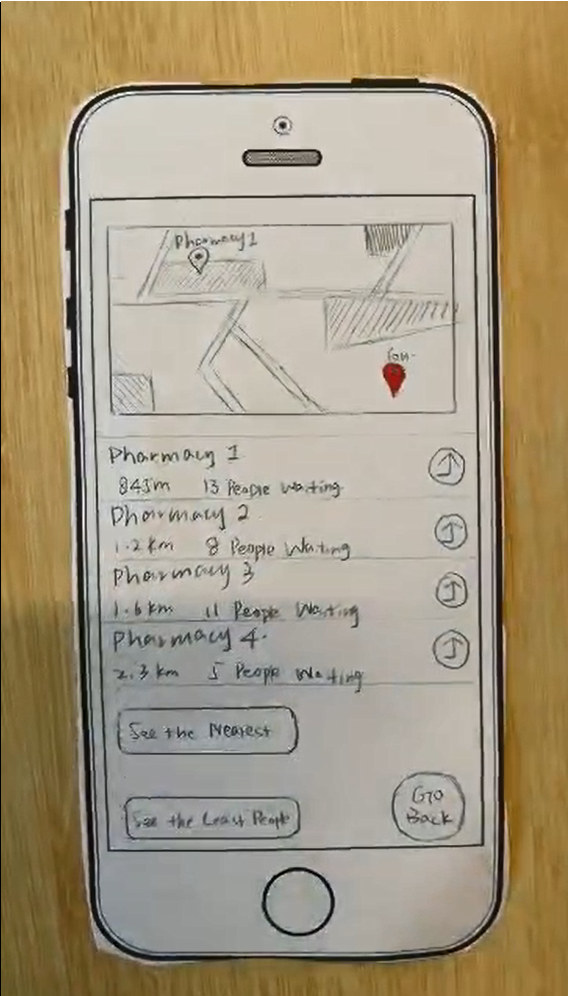 Pharmacy 1
You
Pharmacy 1
843m 13 People Waiting
Pharmacy 2
1.2 km 8 People Waiting
Pharmacy 3
1.6 km 11 People Waiting
Pharmacy 4.
2.3 km 5 People Waiting
See the Nearest
See the Least People
Go
Back